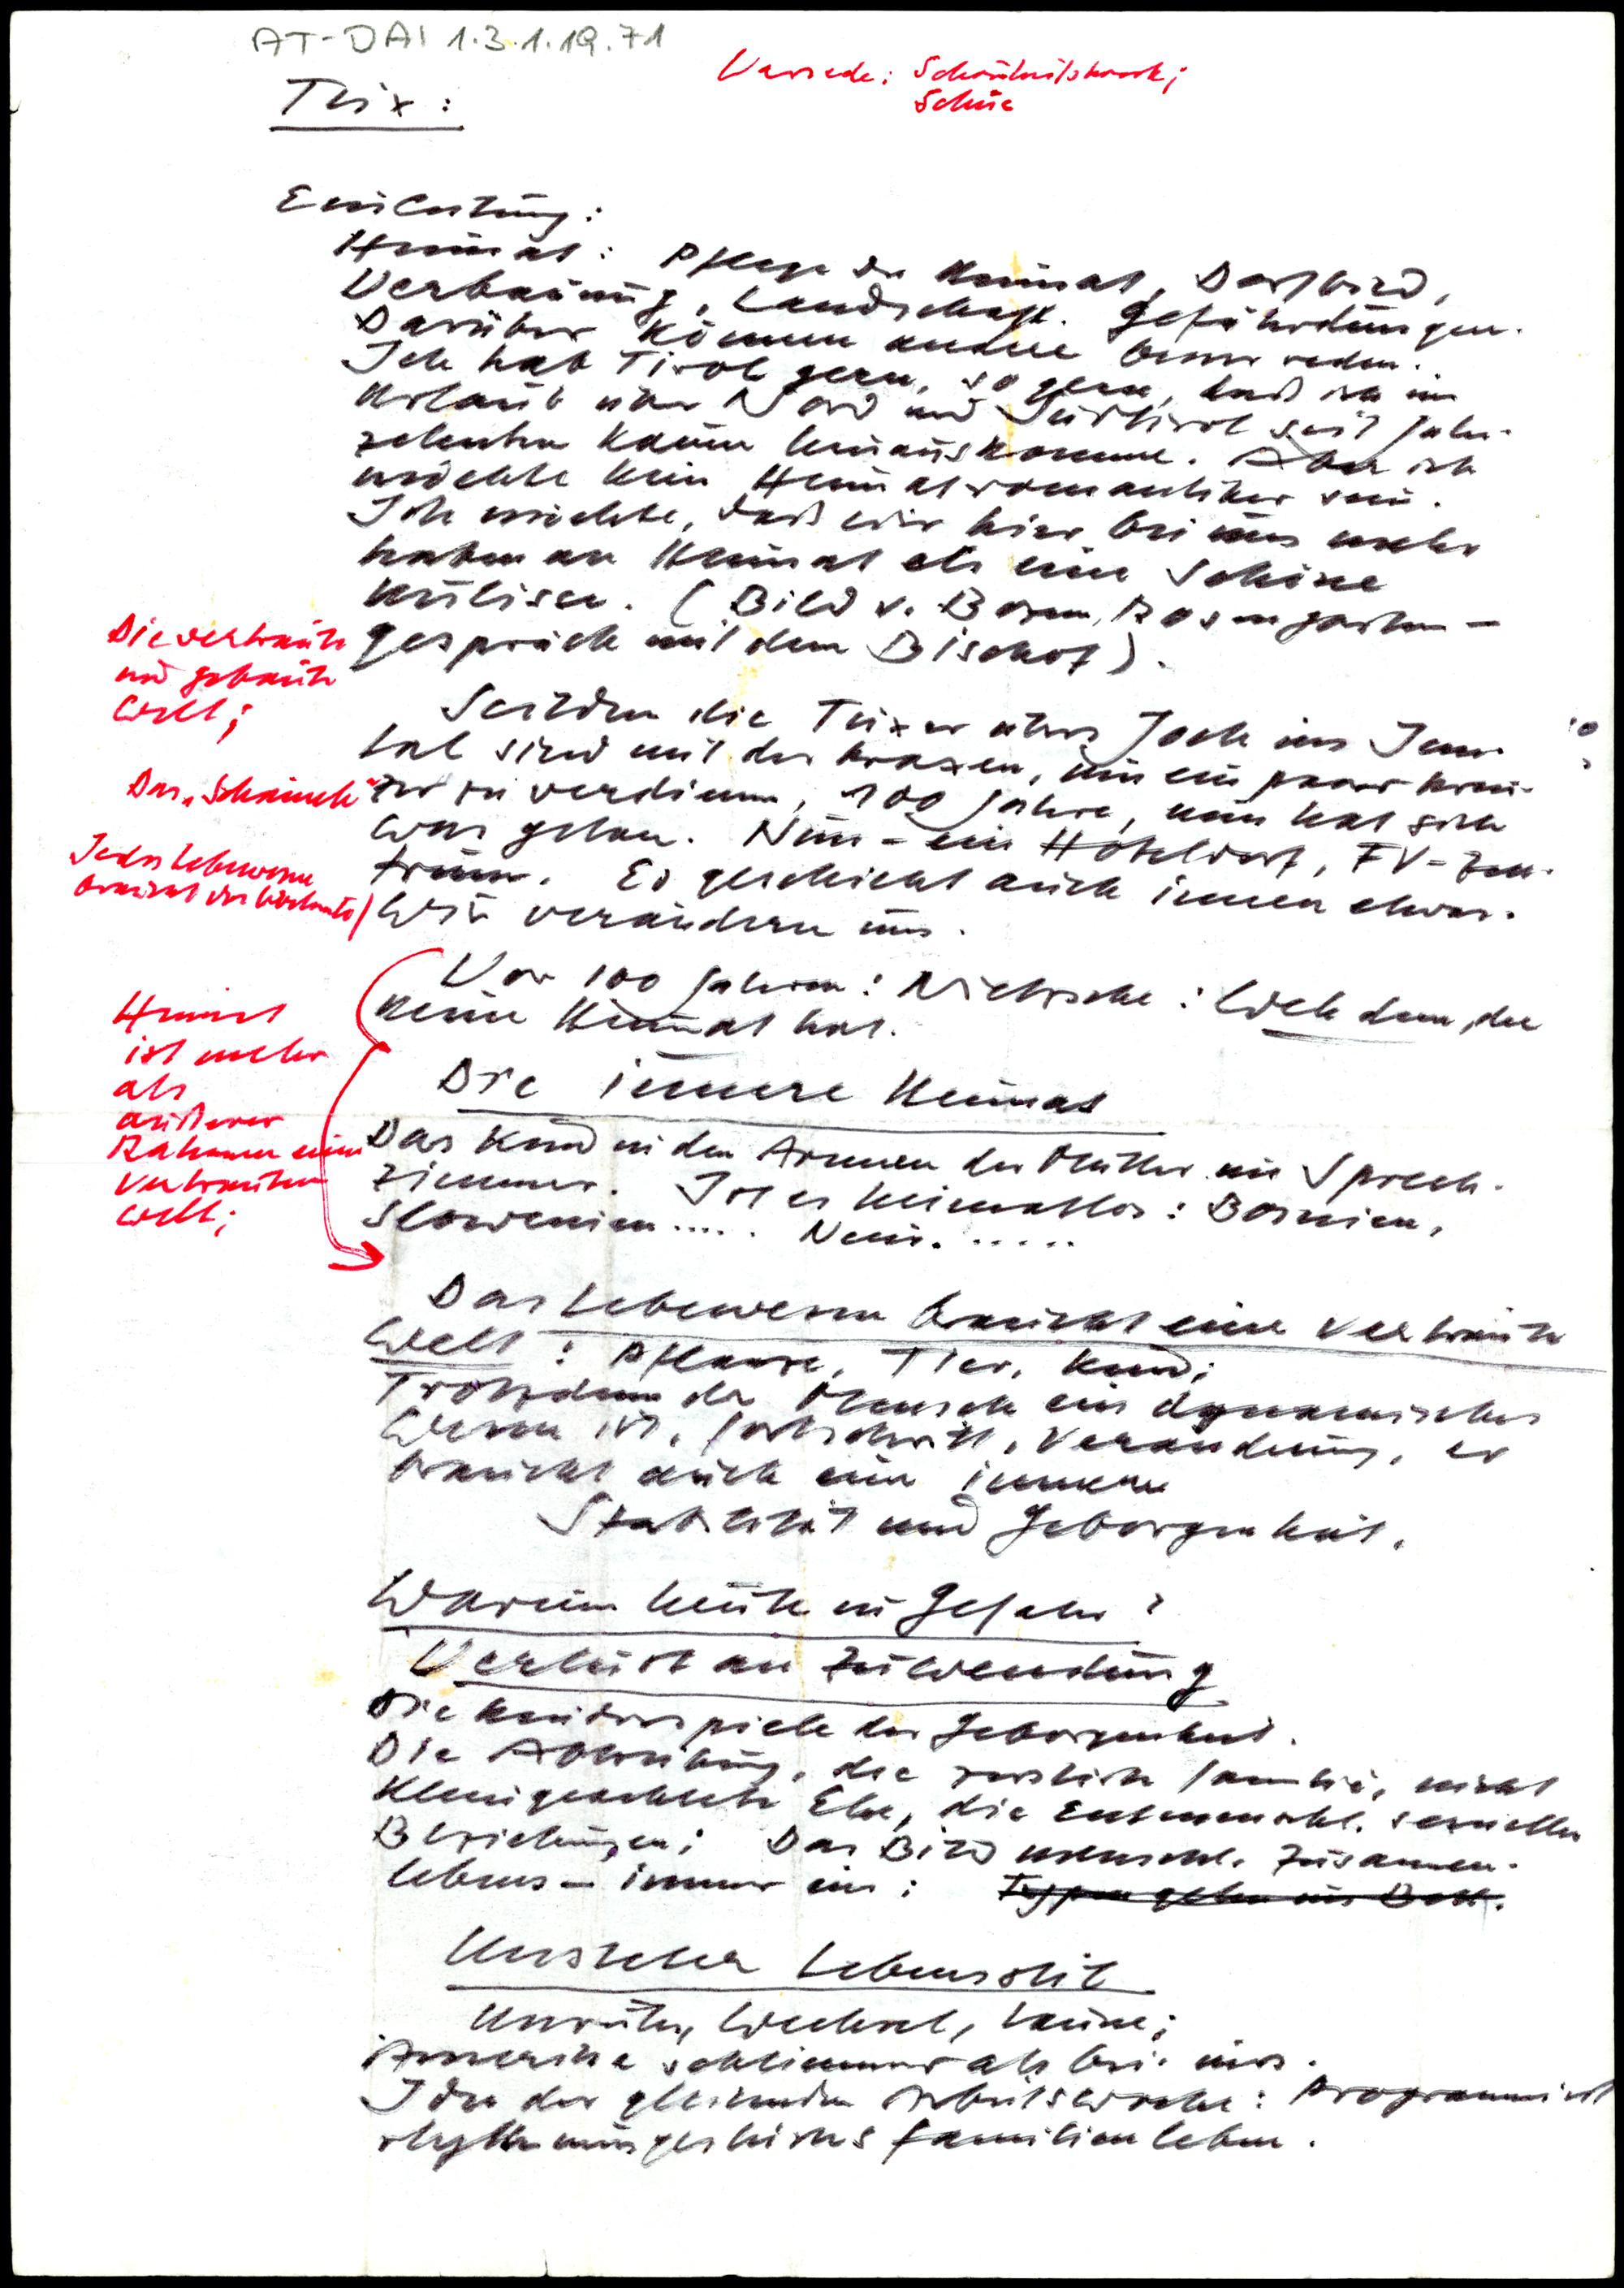 AT-DAI 1.3.1.19.71
Vorrede:
Tux:
Einleitung:
Heimat: Pflege der Heimat, Dorfbild,
Verbauung, Landschaft. Gefährdungen.
Darüber können andere besser reden.
Ich hab Tirol gern, so gern, daß ich im
Urlaub über Nord und Südtirol seit Jahr-
zehnten kaum hinauskomme. Aber ich
möchte kein Heimatromantiker sein.
Ich möchte, daß wir hier bei uns mehr
haben an Heimat als eine schöne
Kulisse. (Bild v. Bozen, Rosengarten -
Gespräch mit dem Bischof).
Die vertraute
und gebaute
Welt;
Seitdem die Tuxer übers Joch ins Inn-
tal sind mit der Kraxen, um ein paar Kreu-
zer zu verdienen, 100 Jahre, nun hat sich
was getan. Nun - ein Hoteldorf, FV-Zen-
trum. Es geschieht auch innen etwas.
Wir verändern uns.
Jedes Lebewesen
braucht das
Vor 100 Jahren: Nietzsche: Weh dem, der
keine Heimat hat.
Heimat
ist mehr
als
äußerer
Rahmen einer
vertrauten
Welt;
Die innere Heimat
Das Kind in den Armen der Mutter im Sprech-
zimmer. Ist es heimatlos: Bosnien,
Slowenien..... Nein......
Das Lebewesen braucht eine vertraute
Welt: Pflanze, Tier, Kind;
Trotzdem der Mensch ein dynamisches
Wesen ist, Fortschritt, Veränderung, er
braucht auch eine innere
Stabilität und Geborgenheit.
Warum heute in Gefahr?
Verlust an Zuwendung
Die Kinderspiele der Geborgenheit.
Die Abtreibung, die zerstörte Familie, nicht
kleingeachtete Ehe, die Entmenschl. sexueller
Beziehungen; Das Bild menschl. Zusammen-
lebens - immer ein: Typen gehen ins Bett.
Unsteter Lebensstil
Unruhe, Wechsel, Laune;
Amerika schlimmer als bei uns.
Idee der gleitenden Arbeitswoche: Programmiert
rhythmusgestörtes Familienleben.